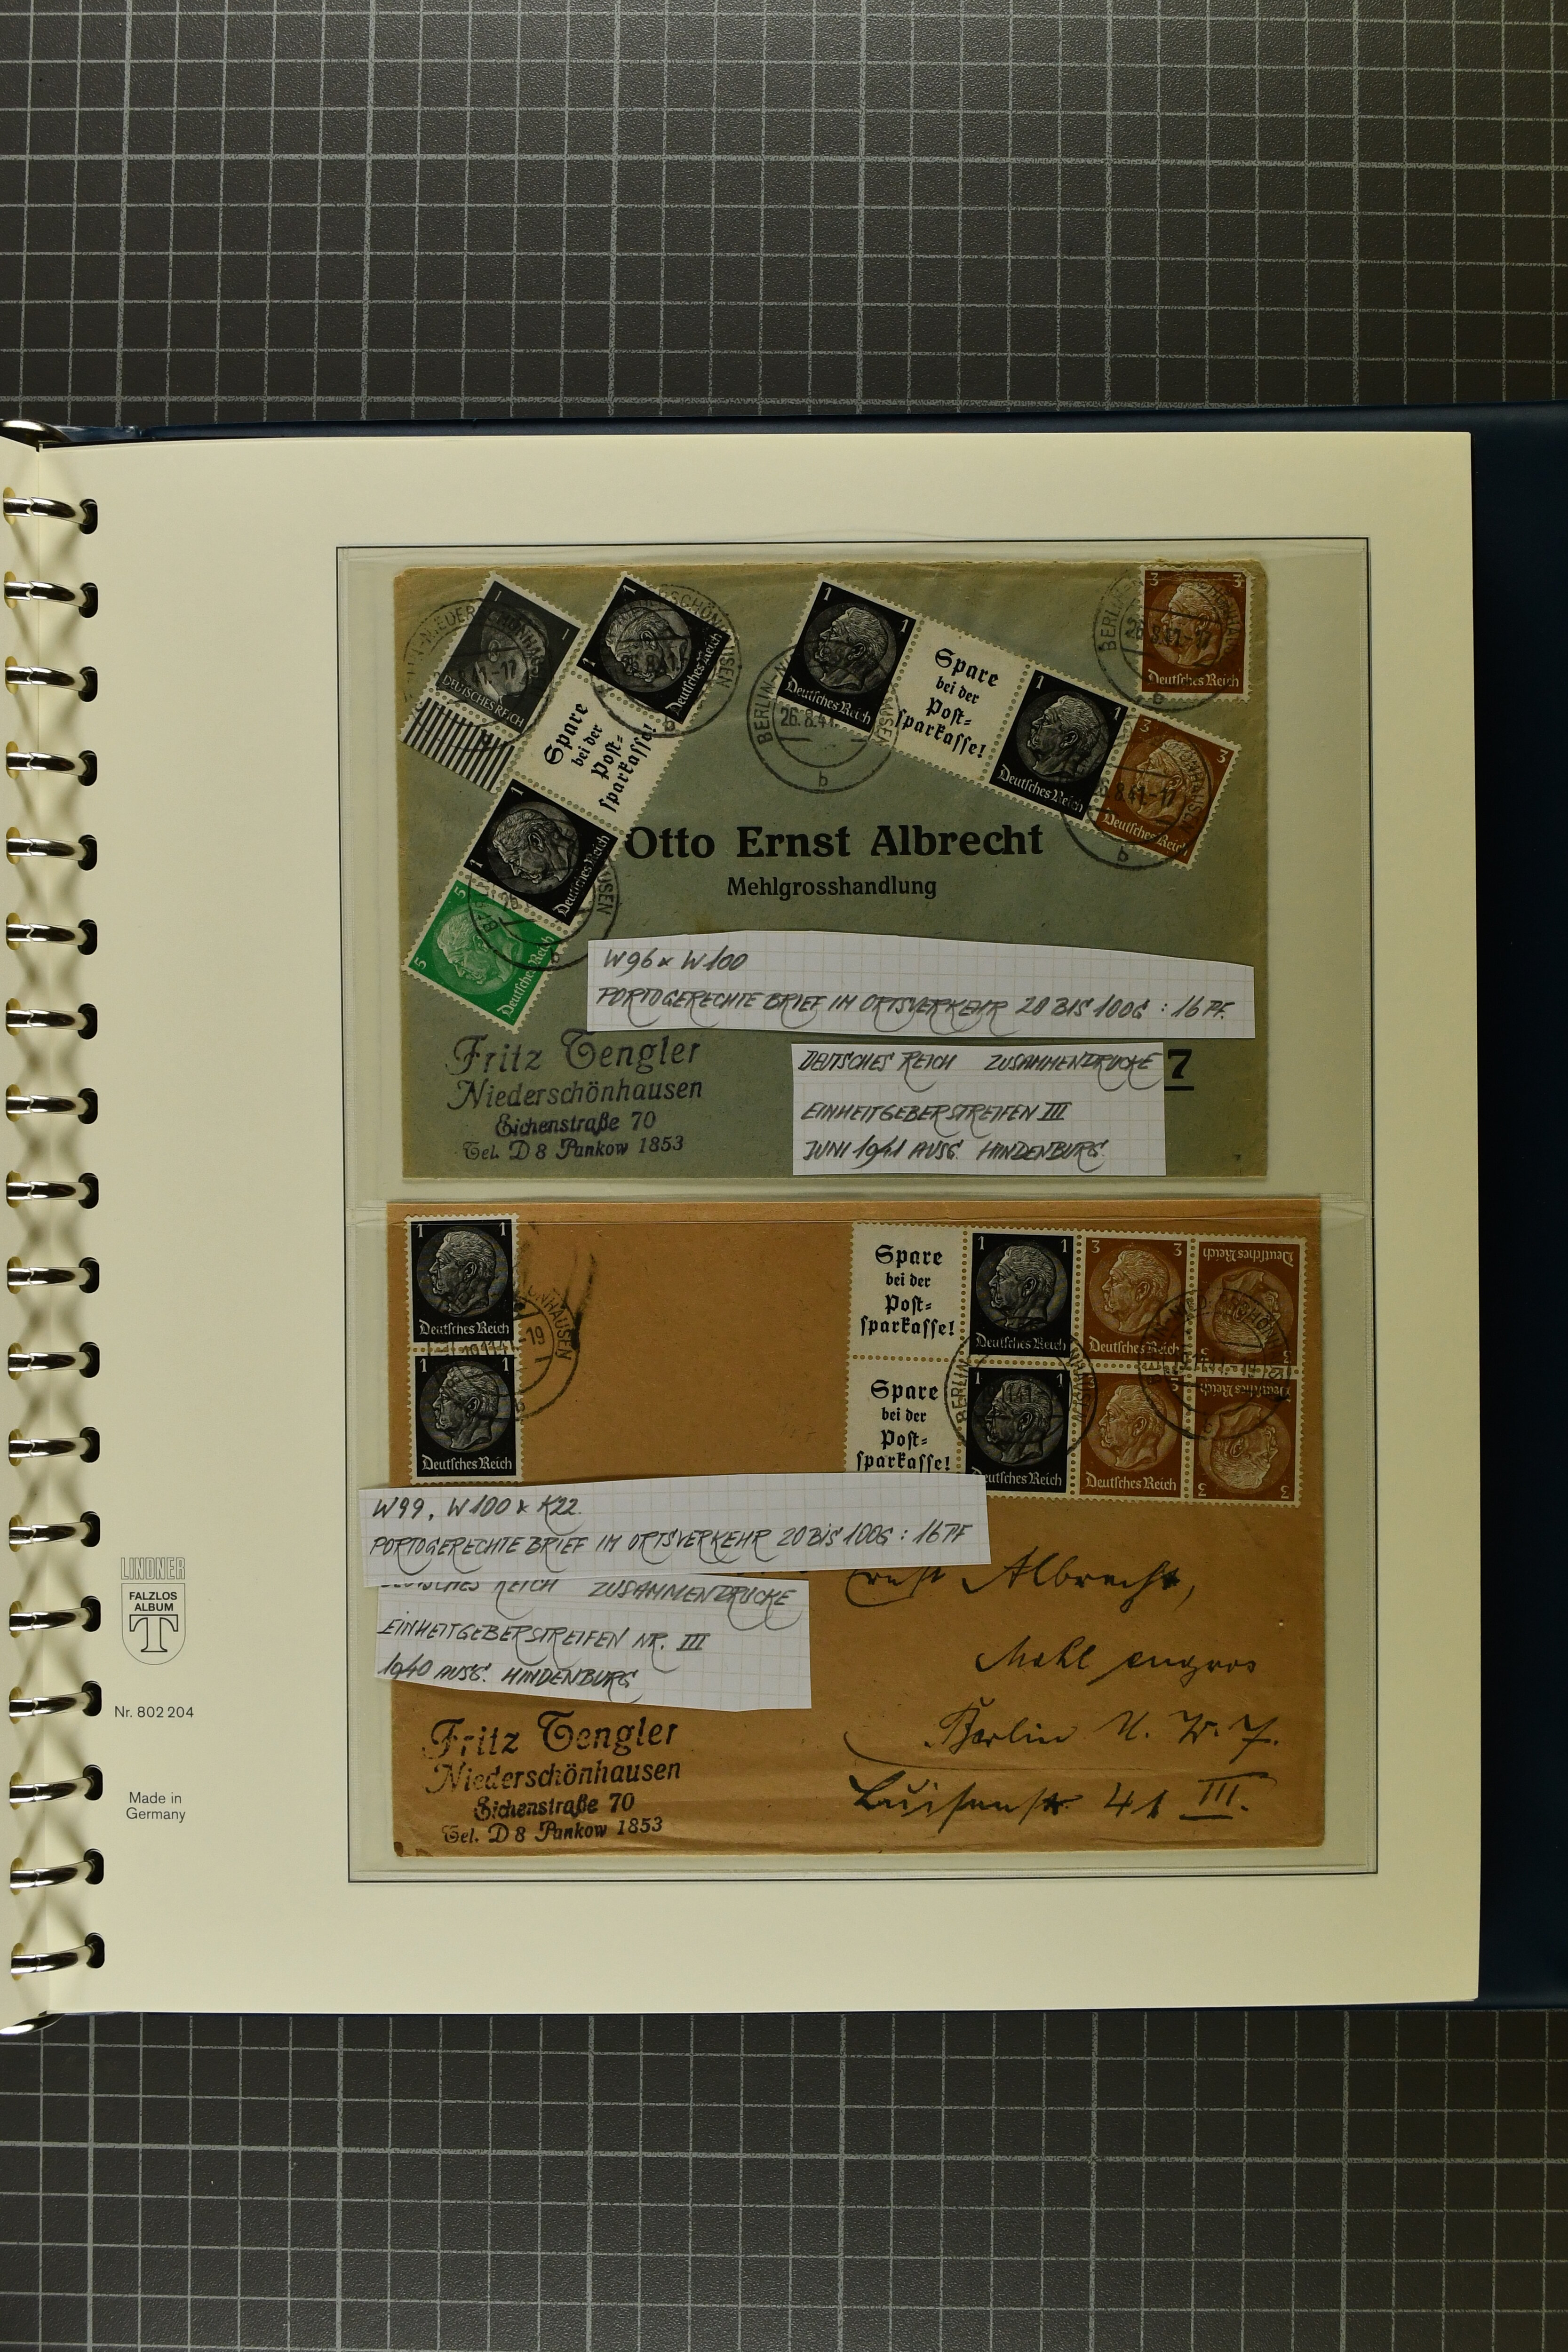 1
1
DEUTSCHES REICH
1
1
Deutsches Reich
Spare
bei der
Post=
sparkasse!
1
1
Deutsches Reich
5
5
Deutsches Reich
1
1
Deutsches Reich
Spare
bei der
Post=
sparkasse!
1
1
Deutsches Reich
3
3
Deutsches Reich
3 3
Deutsches Reich
26.8.41.
b
Otto Ernst Albrecht
Mehlgrosshandlung
W96 x W100
PORTOGERECHTE BRIEF IM ORTSVERKEHR 20 BIS 100G : 16 PF.
DEUTSCHES REICH ZUSAMMENDRUCKE
EINHEITGEBERSTREIFEN III
JUNI 1941 AUSG. HINDENBURG
7
Fritz Tengler
Niederschönhausen
Eichenstraße 70
Tel. D 8 Pankow 1853
1 1
Deutsches Reich
1 1
Deutsches Reich
Spare
bei der
Post=
sparkasse!
1 1
Deutsches Reich
3 3
Deutsches Reich
Deutsches Reich
Spare
bei der
Post=
sparkasse!
1 1
Deutsches Reich
Deutsches Reich
Deutsches Reich
3 3
W99, W100 x K22
PORTOGERECHTE BRIEF IM ORTSVERKEHR 20 BIS 100G : 16 PF
DEUTSCHES REICH ZUSAMMENDRUCKE
EINHEITGEBERSTREIFEN NR. III
1940 AUSG. HINDENBURG
Ernst Albrecht,
Mehl engros
Berlin N. W. 7.
Luisenstr 41 III.
Fritz Tengler
Niederschönhausen
Eichenstraße 70
Tel. D 8 Pankow 1853
LINDNER
FALZLOS
ALBUM
T
Nr. 802 204
Made in
Germany